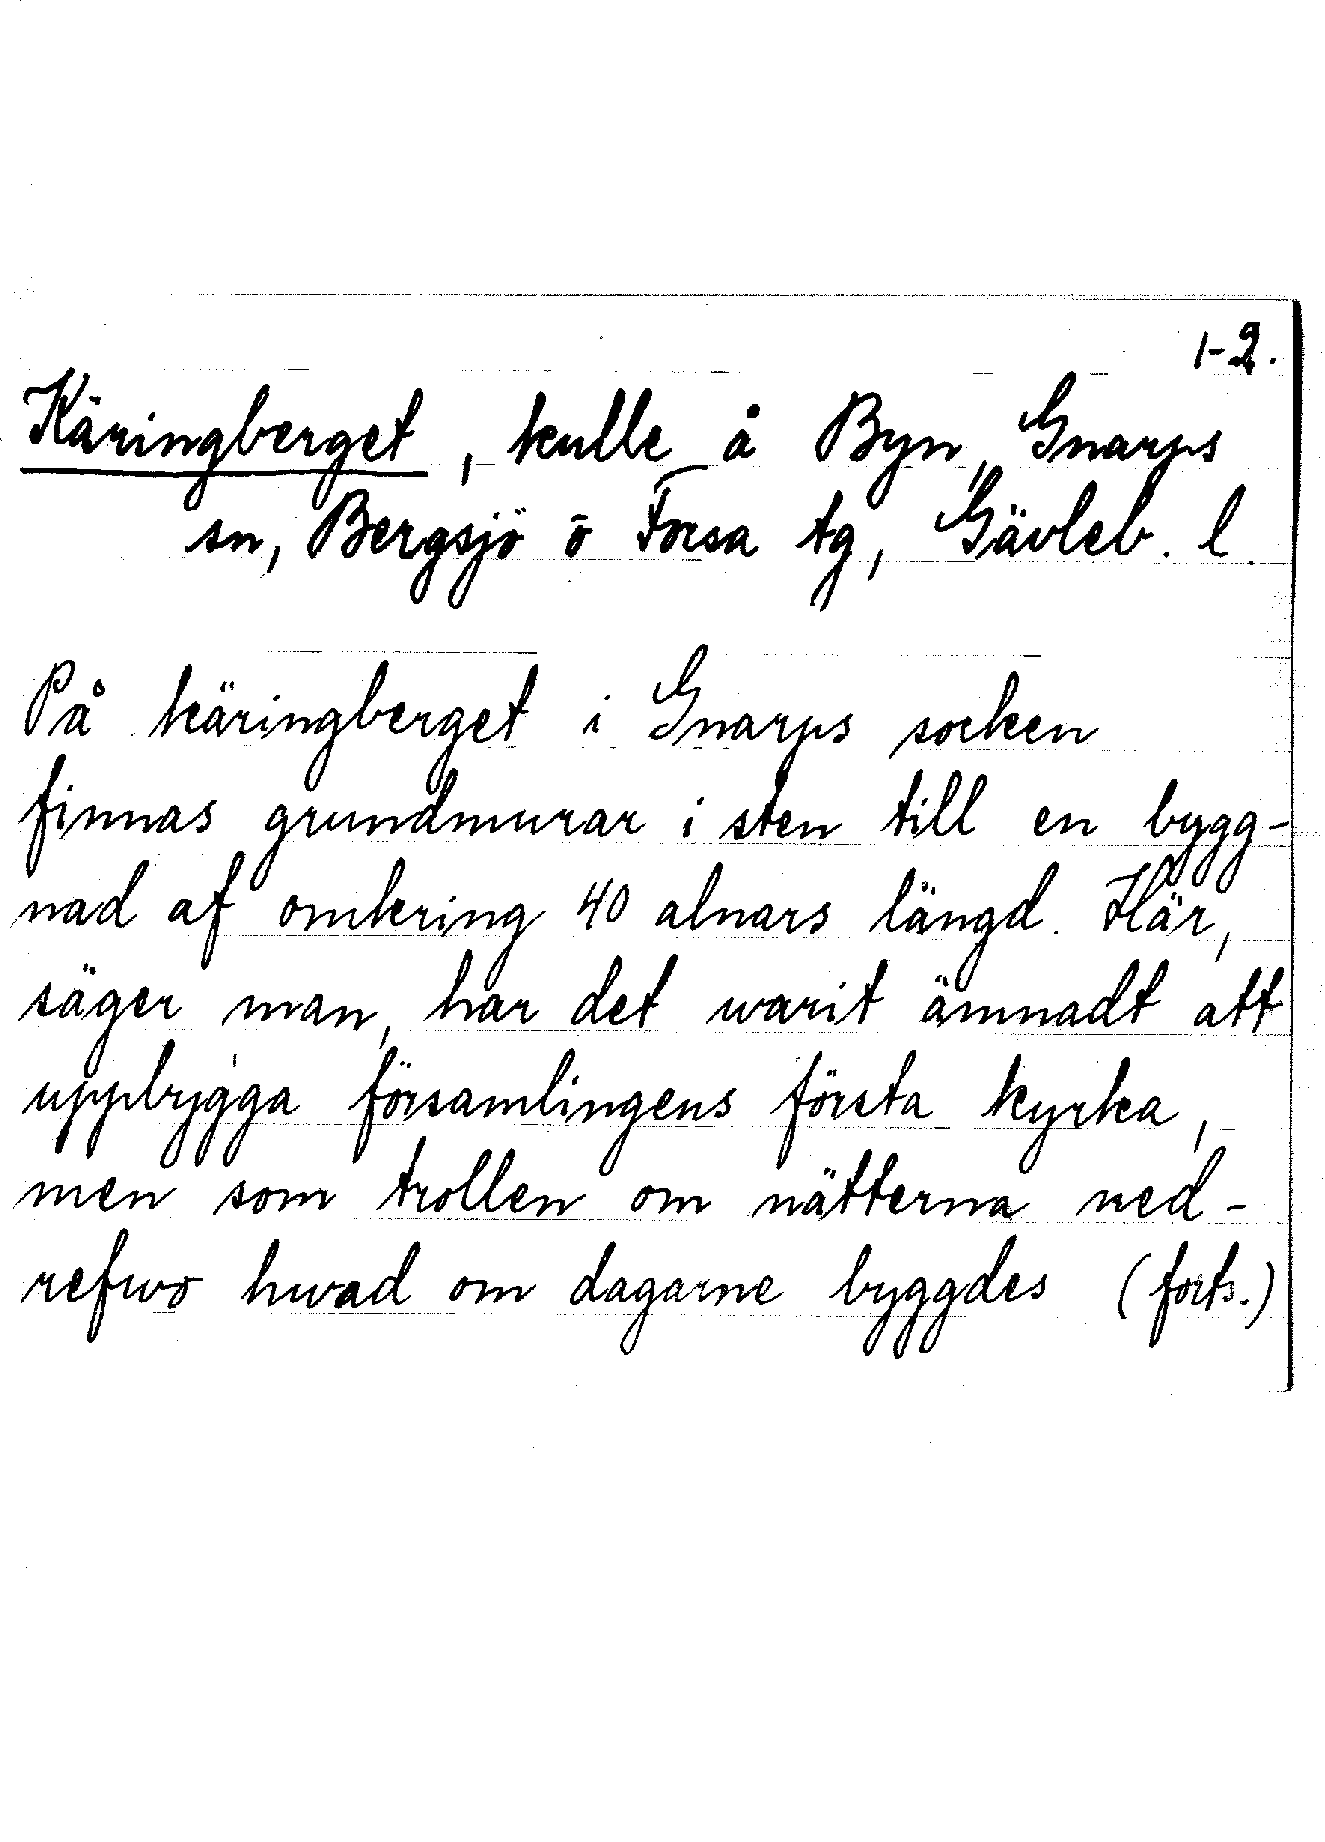 1-2.
Käringberget, kulle å Byn, Gnarps
sn, Bergsjö o Forsa tg, Gävleb. l.
På käringberget i Gnarps socken
finnas grundmurar i sten till en bygg-
nad af omkring 40 alnars längd. Här,
säger man, har det warit ämnadt att
uppbygga församlingens första kyrka,
men som trollen om nätterna ned-
refwo hwad om dagarne byggdes (forts.)